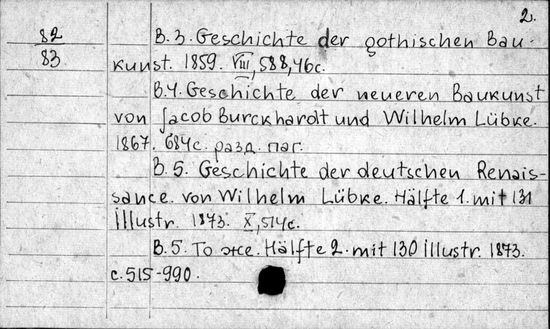 2.
82
83
B. 3. Geschichte der gothischen Bau-
kunst. 1859. VIII, 588, 46 с.
B. 4. Geschichte der neueren Baukunst
von Jacob Burckhardt und Wilhelm Lübke.
1867. 684 с. разд. паг.
B. 5. Geschichte der deutschen Renais-
sance. von Wilhelm Lübke. Hälfte 1. mit 131
Illustr. 1873. X, 514 с.
B. 5. То же. Hälfte 2. mit 130 Illustr. 1873.
с. 515-990.